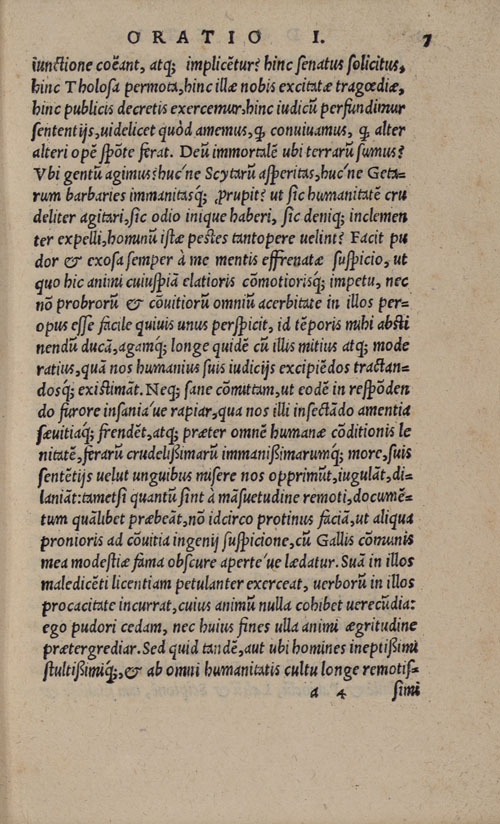 ORATIO I. 7
iunctione coëant, atq; implicētur? hinc senatus solicitus,
hinc Tholosa permota, hinc illæ nobis excitatæ tragœdiæ,
hinc publicis decretis exercemur, hinc iudicū perfundimur
sententijs, uidelicet quòd amemus, q̃ conuiuamus, q̃ alter
alteri opē spōte ferat. Deū immortalē ubi terrarū sumus?
Vbi gentū agimus? huc'ne Scytarū asperitas, huc'ne Geta-
rum barbaries immanitasq́; ꝓrupit? ut sic humanitatē cru
deliter agitari, sic odio inique haberi, sic deniq; inclemen
ter expelli, hominū istæ pestes tantopere uelint? Facit pu
dor & exosa semper à me mentis effrenatæ suspicio, ut
quo hic animi cuiuspiā elatioris cōmotiorisq́; impetu, nec
nō probrorū & cōuitiorū omniū acerbitate in illos per-
opus esse facile quiuis unus perspicit, id tēporis mihi absti
nendū ducā, agamq́; longe quidē cū illis mitius atq; mode
ratius, quā nos humanius suis iudicijs excipiēdos tractan-
dosq́; existimāt. Neq; sane cōmittam, ut eodē in respōden
do furore insania'ue rapiar, qua nos illi insectādo amentia
sæuitiaq́; frendēt, atq; præter omnē humanæ cōditionis le
nitatē, ferarū crudelißimarū immanißimarumq́; more, suis
sentētijs uelut unguibus misere nos opprimūt, iugulāt, di-
laniāt: tametsi quantū sint à māsuetudine remoti, documē-
tum quālibet præbeāt, nō idcirco protinus faciā, ut aliqua
pronioris ad cōuitia ingenij suspicione, cū Gallis cōmunis
mea modestiæ fama obscure aperte'ue lædatur. Suā in illos
maledicēti licentiam petulanter exerceat, uerborū in illos
procacitate incurrat, cuius animū nulla cohibet uerecūdia:
ego pudori cedam, nec huius fines ulla animi ægritudine
prætergrediar. Sed quid tandē, aut ubi homines ineptißimi
stultißimiq́;, & ab omni humanitatis cultu longe remotis-
a 4 simi